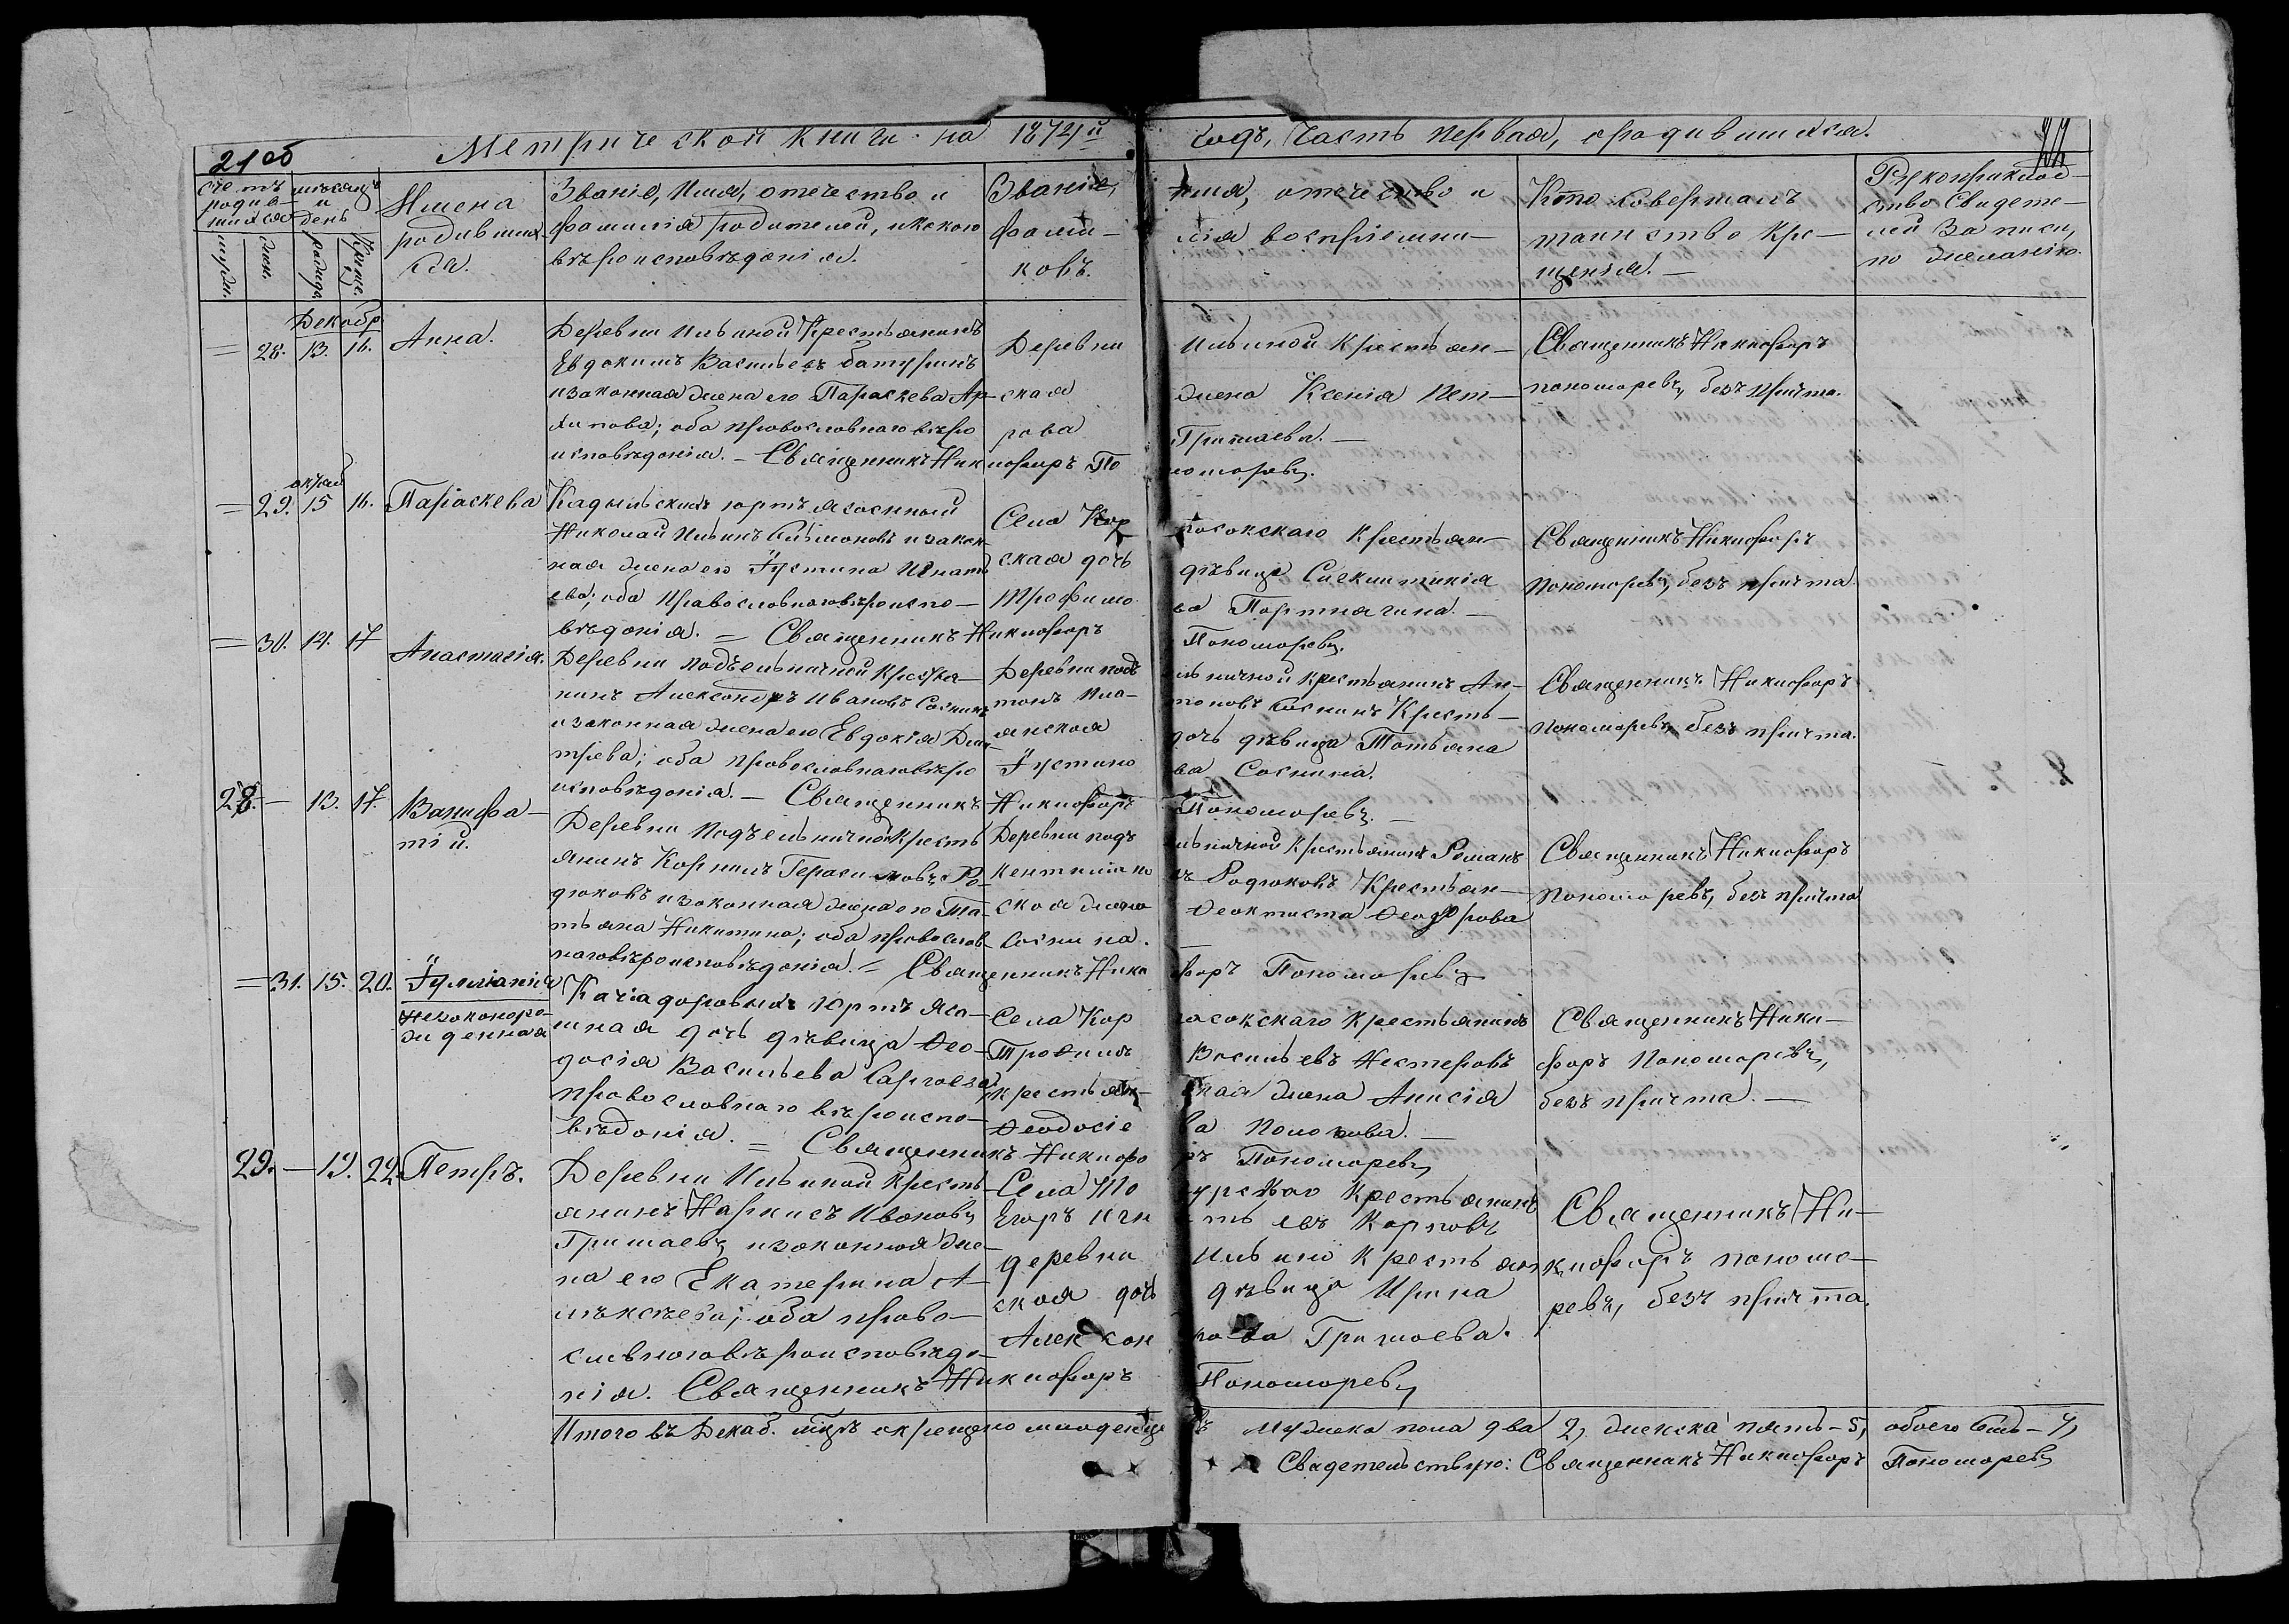 21об
Метрической книги на 1874й годъ, Часть первая, о родившихся.
Счетъ родившихся
мужск.
жен.
мѣсяцъ и день
рожден.
Креще.
Имена родившихся.
Званіе, имя, отечество и
фамилія родителей, и какого
вѣроисповѣданія.
Званіе, имя, отечество и
фамилія воспріемни-
ковъ.
Кто совершалъ
таинство Кре-
щенія.
Рукоприклад-
ство Свидете-
лей Записи,
по желанію.
Декабр.
28. 13. 16. Анна.
Деревни Ильиной Крестьянинъ
Евдокимъ Васильевъ батуринъ
и законная жена его Параскева Ар-
хипова; оба православнаго вѣро
исповѣданія. – Священникъ Никифоръ Пономоревъ.
Деревни Ильиной Крестьян-
ская жена Ксенія Пет-
рова Гришаева.
Священникъ Никифоръ
пономоревъ, безъ причта.
29. 15 16. Параскева
Кадыльскихъ юртъ ясошный
Николай Ильинъ и закон-
ная жена его Іустина Игнать
ева; оба Православнаго вѣроиспо-
вѣданія. = Священникъ Никифоръ Пономоревъ.
Села Кор посокскаго Крестьян-
ская дочь дѣвица
Трофимова Портнягина.
Священникъ Никифоръ
Пономоревъ, безъ причта.
30. 14. 17 Анастасія.
Деревни подъельничной Крестья-
нинъ Александръ Ивановъ Соснинъ
и законная жена его Евдокія Дми-
трева; оба православнаго вѣро
исповѣданія. – Священникъ Никифоръ Пономоревъ.
Деревни подъельничной Крестьянинъ Ан-
тонъ Пла-тоновъ Соснинъ Кресть-
янская дочь дѣвица Татьяна
Іустинова Соснина.
Священникъ Никифоръ
Пономоревъ, безъ причта.
28. – 13. 17. Вани­фа-
тій.
Деревни Подъельничной Кресть
янинъ Корнилъ Герасимовъ Ро-
дюковъ и законная жена его Та-
тьяна Никитина; оба православ-
наго вѣроисповѣданія. = Священникъ Никифоръ Пономоревъ
Деревни подъельничной Крестьянинъ Романъ
Родюковъ Крестьян-
ская жена Феоктиста Феодорова
Соснина.
Священникъ Никифоръ
Пономоревъ, безъ причта
31. 15. 20. Іуліанія
незаконоро-
жденная
юртъ Ясо-
шная дочь дѣвица Фео-
досія Васильева
православнаго вѣроиспо-
вѣданія. = Священникъ Никифоръ Пономоревъ
Села Кор посокскаго Крестьянинъ
Трофимъ Васильевъ Нестеровъ
крестьянская жена Анисія
Феодосіева
Священникъ Ники-
форъ Пономоревъ,
безъ причта.
29. – 19. 22. Петръ.
Деревни Ильиной Кресть-
янинъ Наркисъ Ивановъ
Гришаевъ, и законная же-
на его Екатерина А-
лѣксѣева; оба право-
славнаго вѣроисповѣда-
нія. Священникъ Никифоръ Пономоревъ
Села Крестьянинъ
Егоръ Игнатьевъ Карповъ
деревни Ильино Крестьян
ская дочь дѣвица Ирина
Александрова Гришаева.
Священникъ Ни-
кифоръ пономо-
ревъ, безъ причта.
Итого въ Декаб. мцѣ окрещено младенцевъ мужеска пола два 2, женска пять – 5, обоего семь – 7,
Свидетельствую: Священникъ Никифоръ Пономоревъ